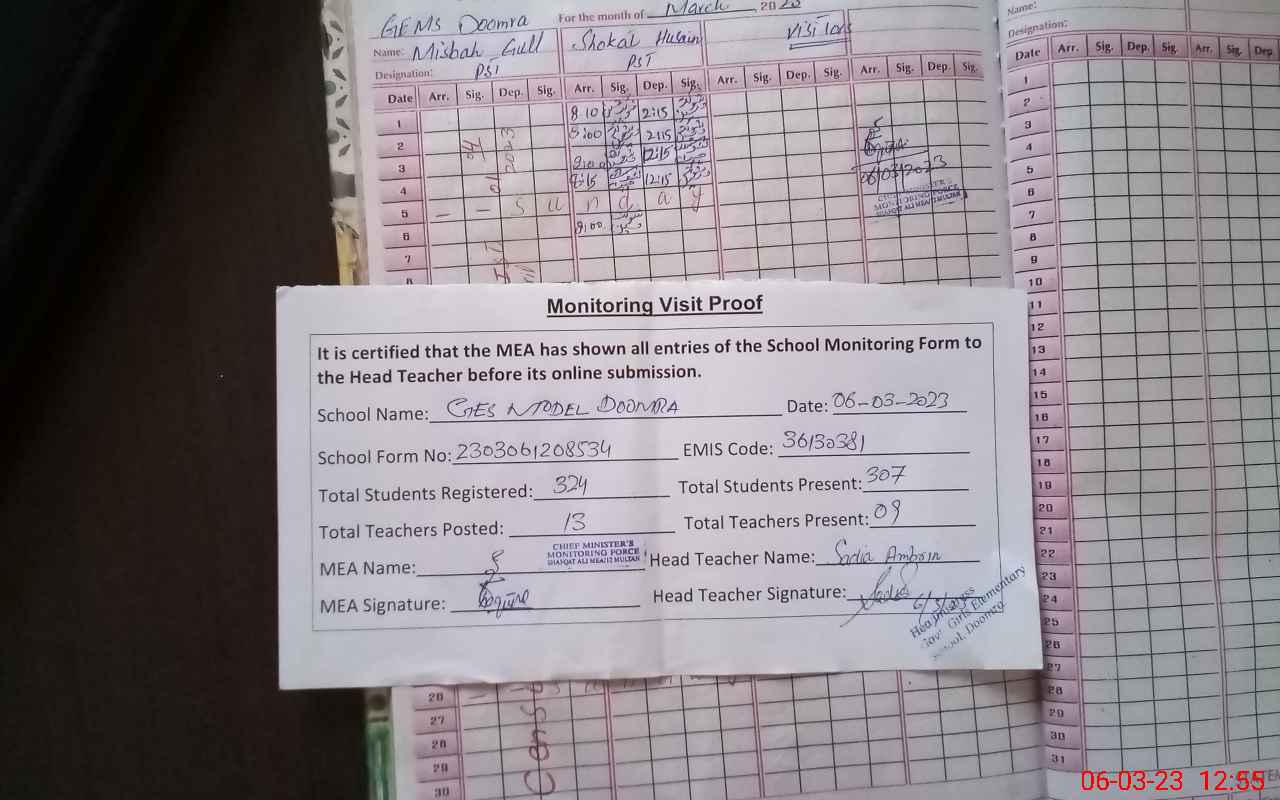 GEMS Doomra For the month of March 2023
Name: Misbah Gull Shokat Husain Visitors
Designation: PST PST
Date Arr. Sig. Dep. Sig. Arr. Sig. Dep. Sig. Arr. Sig. Dep. Sig. Arr. Sig. Dep. Sig.
1 8:10 2:15
2 8:00 2:15
3 12:15
4 8:15 12:15
5 - - S u n d a y
6 8:00
7
8
06/03/2023
CHIEF MINISTER'S
MONITORING FORCE
SHAFQAT ALI MEA/12 MULTAN
Name:
Designation:
Date Arr. Sig. Dep. Sig. Arr. Sig. Dep.
1
2
3
4
5
6
7
8
9
10
11
12
13
14
15
16
17
18
19
20
21
22
23
24
25
26
27
28
29
30
31
Monitoring Visit Proof
It is certified that the MEA has shown all entries of the School Monitoring Form to
the Head Teacher before its online submission.
School Name: GES MODEL DOOMRA Date: 06-03-2023
School Form No: 2303061208534 EMIS Code: 36130381
Total Students Registered: 324 Total Students Present: 307
Total Teachers Posted: 13 Total Teachers Present: 09
CHIEF MINISTER'S
MONITORING FORCE
SHAFQAT ALI MEA/12 MULTAN
MEA Name: Head Teacher Name: Sadia Ambrin
MEA Signature: Head Teacher Signature:
Headmistress
Gov: Girls Elementary
School, Doomra
26
27
28
29
30
06-03-23 12:55